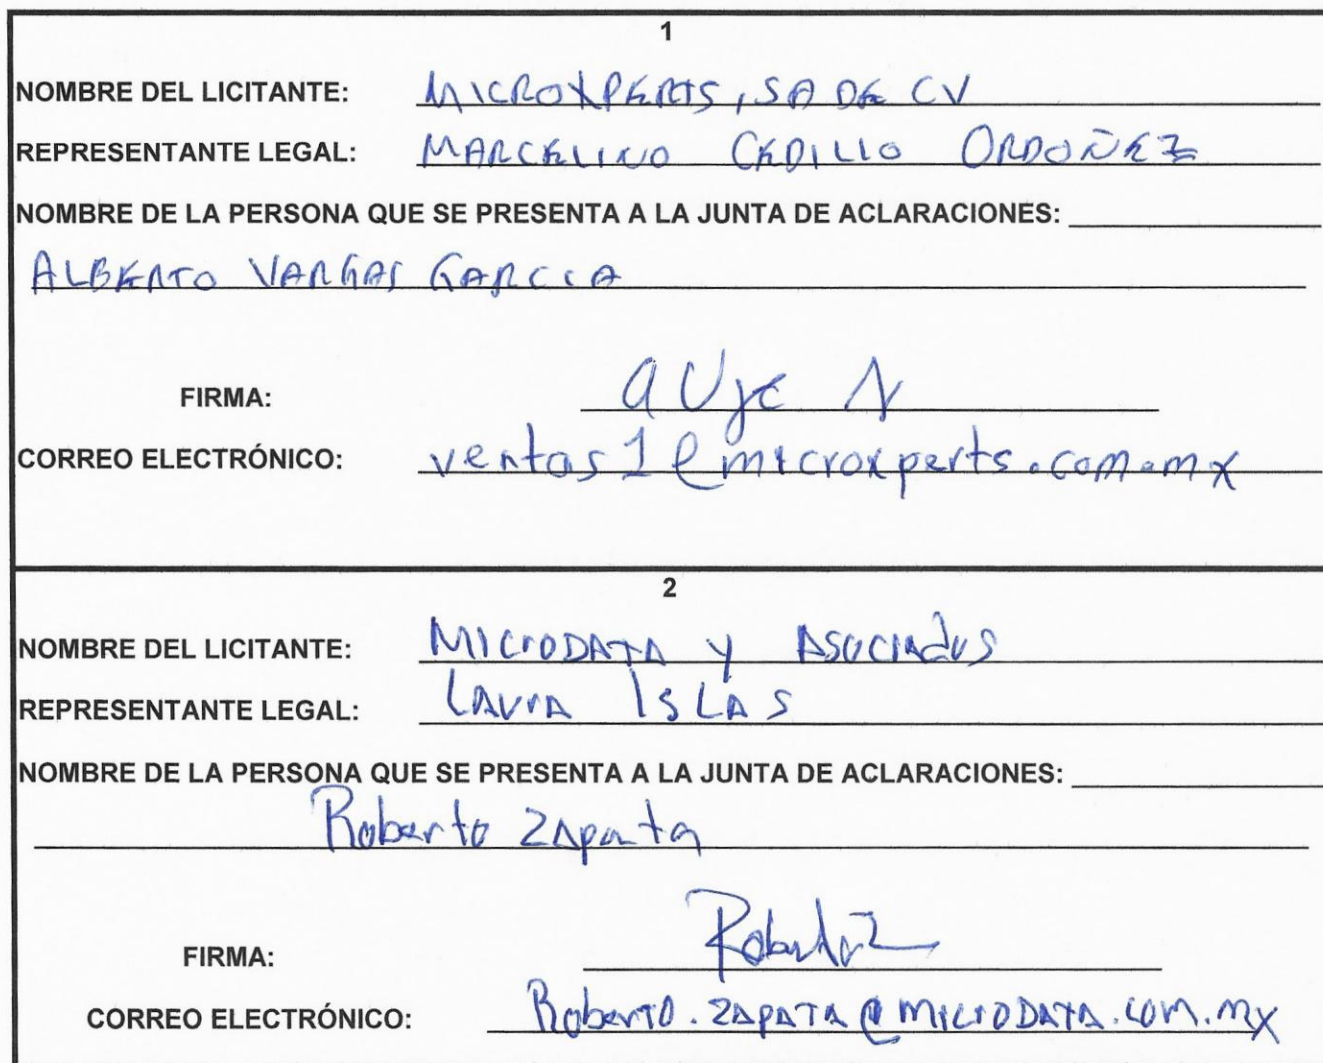 1
NOMBRE DEL LICITANTE: MICROXPERTS, SA DE CV
REPRESENTANTE LEGAL: MARCELINO CEDILLO ORDOÑEZ
NOMBRE DE LA PERSONA QUE SE PRESENTA A LA JUNTA DE ACLARACIONES:
ALBERTO VARGAS GARCIA
FIRMA:
CORREO ELECTRÓNICO: ventas1@microxperts.com.mx
2
NOMBRE DEL LICITANTE: MICRODATA Y ASOCIADOS
REPRESENTANTE LEGAL: LAURA ISLAS
NOMBRE DE LA PERSONA QUE SE PRESENTA A LA JUNTA DE ACLARACIONES:
Roberto Zapata
FIRMA: RobertoZ
CORREO ELECTRÓNICO: Roberto.ZAPATA@MICRODATA.COM.MX